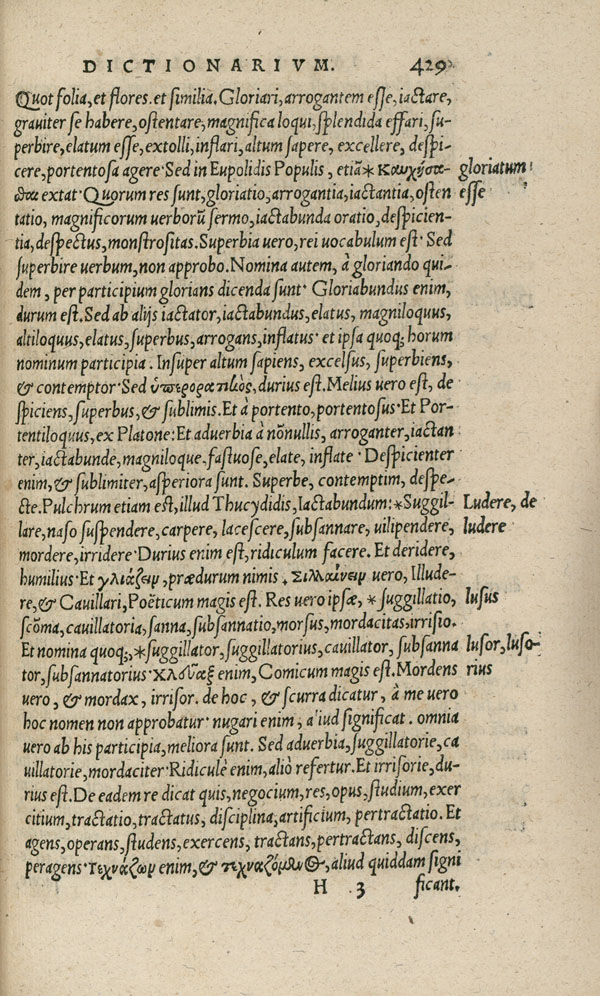 DICTIONARIVM. 429
Quot folia, et flores. et similia. Gloriari, arrogantem esse, iactare,
grauiter se habere, ostentare, magnifica loqui, splendida effari, su-
perbire, elatum esse, extolli, inflari, altum sapere, excellere, despi-
cere, portentosa agere· Sed in Eupolidis Populis, etiã * Καυχήσα- gloriatum
σθαι extat· Quorum res sunt, gloriatio, arrogantia, iactantia, osten esse
tatio, magnificorum uerborũ sermo, iactabunda oratio, despicien-
tia, despectus, monstrositas. Superbia uero, rei uocabulum est· Sed
superbire uerbum, non approbo. Nomina autem, à gloriando qui-
dem, per participium glorians dicenda sunt· Gloriabundus enim,
durum est. Sed ab alijs iactator, iactabundus, elatus, magniloquus,
altiloquus, elatus, superbus, arrogans, inflatus· et ipsa quoq; horum
nominum participia. Insuper altum sapiens, excelsus, superbiens,
& contemptor· Sed ὑπεροραπκὸς, durius est. Melius uero est, de
spiciens, superbus, & sublimis. Et à portento, portentosus· Et Por-
tentiloquus, ex Platone: Et aduerbia à nõnullis, arroganter, iactan
ter, iactabunde, magniloque. fastuose, elate, inflate· Despicienter
enim, & sublimiter, asperiora sunt. Superbe, contemptim, despe-
cte. Pulchrum etiam est, illud Thucydidis, Iactabundum: * Suggil- Ludere, de
lare, naso suspendere, carpere, lacescere, subsannare, uilipendere, ludere
mordere, irridere· Durius enim est, ridiculum facere. Et deridere,
humilius· Et γλιάζειν, prædurum nimis. Σιλλαίνειν uero, Illude-
re, & Cauillari, Poëticum magis est. Res uero ipsæ, * suggillatio, lusus
scõma, cauillatoria, sanna, subsannatio, morsus, mordacitas, irrisio.
Et nomina quoq;, * suggillator, suggillatorius, cauillator, subsanna lusor, luso-
tor, subsannatorius· Χλούαξ enim, Comicum magis est. Mordens rius
uero, & mordax, irrisor. de hoc, & scurra dicatur, à me uero
hoc nomen non approbatur· nugari enim, aliud significat. omnia
uero ab his participia, meliora sunt. Sed aduerbia, suggillatorie, ca
uillatorie, mordaciter· Ridiculè enim, aliò refertur. Et irrisorie, du-
rius est. De eadem re dicat quis, negocium, res, opus, studium, exer
citium, tractatio, tractatus, disciplina, artificium, pertractatio. Et
agens, operans, studens, exercens, tractans, pertractans, discens,
peragens· Τεχνάζων enim, & τεχναζόμενος, aliud quiddam signi
H 3 ficant.